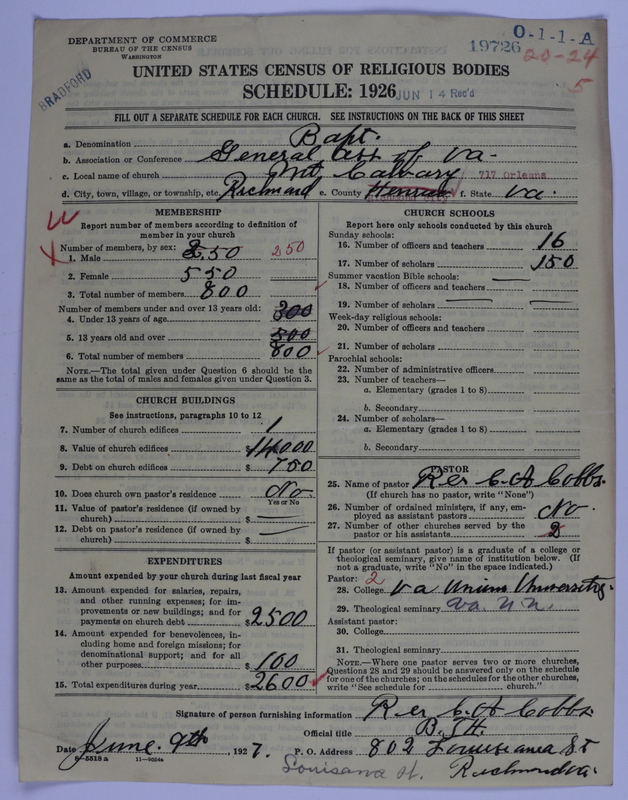 DEPARTMENT OF COMMERCE
BUREAU OF THE CENSUS
WASHINGTON
BRADFORD
19726
O-1-1-A
20-24
5
UNITED STATES CENSUS OF RELIGIOUS BODIES
SCHEDULE: 1926
JUN 14 Rec'd
FILL OUT A SEPARATE SCHEDULE FOR EACH CHURCH. SEE INSTRUCTIONS ON THE BACK OF THIS SHEET
a. Denomination Bapt.
b. Association or Conference General Ass of Va-
c. Local name of church Mt. Calvary 717 Orleans
d. City, town, village, or township, etc. Richmond e. County Henrico f. State Va.
MEMBERSHIP
Report number of members according to definition of
member in your church
Number of members, by sex:
1. Male 250 250
2. Female 550
3. Total number of members 800
Number of members under and over 13 years old:
4. Under 13 years of age 300
5. 13 years old and over 500
6. Total number of members 800
NOTE.—The total given under Question 6 should be the
same as the total of males and females given under Question 3.
CHURCH BUILDINGS
See instructions, paragraphs 10 to 12
7. Number of church edifices 1
8. Value of church edifices $14000
9. Debt on church edifices $ 750
10. Does church own pastor's residence No.
Yes or No
11. Value of pastor's residence (if owned by
church) $ —
12. Debt on pastor's residence (if owned by
church) $ —
EXPENDITURES
Amount expended by your church during last fiscal year
13. Amount expended for salaries, repairs,
and other running expenses; for im-
provements or new buildings; and for
payments on church debt $2500
14. Amount expended for benevolences, in-
cluding home and foreign missions; for
denominational support; and for all
other purposes $ 100
15. Total expenditures during year $2600
CHURCH SCHOOLS
Report here only schools conducted by this church
Sunday schools:
16. Number of officers and teachers 16
17. Number of scholars 150
Summer vacation Bible schools:
18. Number of officers and teachers
19. Number of scholars
Week-day religious schools:
20. Number of officers and teachers
21. Number of scholars
Parochial schools:
22. Number of administrative officers
23. Number of teachers—
a. Elementary (grades 1 to 8)
b. Secondary
24. Number of scholars—
a. Elementary (grades 1 to 8)
b. Secondary
PASTOR
25. Name of pastor Rev C. A Cobbs.
(If church has no pastor, write "None")
26. Number of ordained ministers, if any, em-
ployed as assistant pastors No.
27. Number of other churches served by the
pastor or his assistants 2
If pastor (or assistant pastor) is a graduate of a college or
theological seminary, give name of institution below. (If
not a graduate, write "No" in the space indicated.)
Pastor: 2
28. College Va Union University.
29. Theological seminary Va. U n.
Assistant pastor:
30. College
31. Theological seminary
NOTE.—Where one pastor serves two or more churches,
Questions 28 and 29 should be answered only on the schedule
for one of the churches; on the schedules for the other churches,
write "See schedule for church."
Signature of person furnishing information Rev C. A Cobbs.
Official title B. TH.
Date June. 9th, 1927. P. O. Address 802 Louiseana St
8-5518 a
Lousiana st.
Richmond Va.